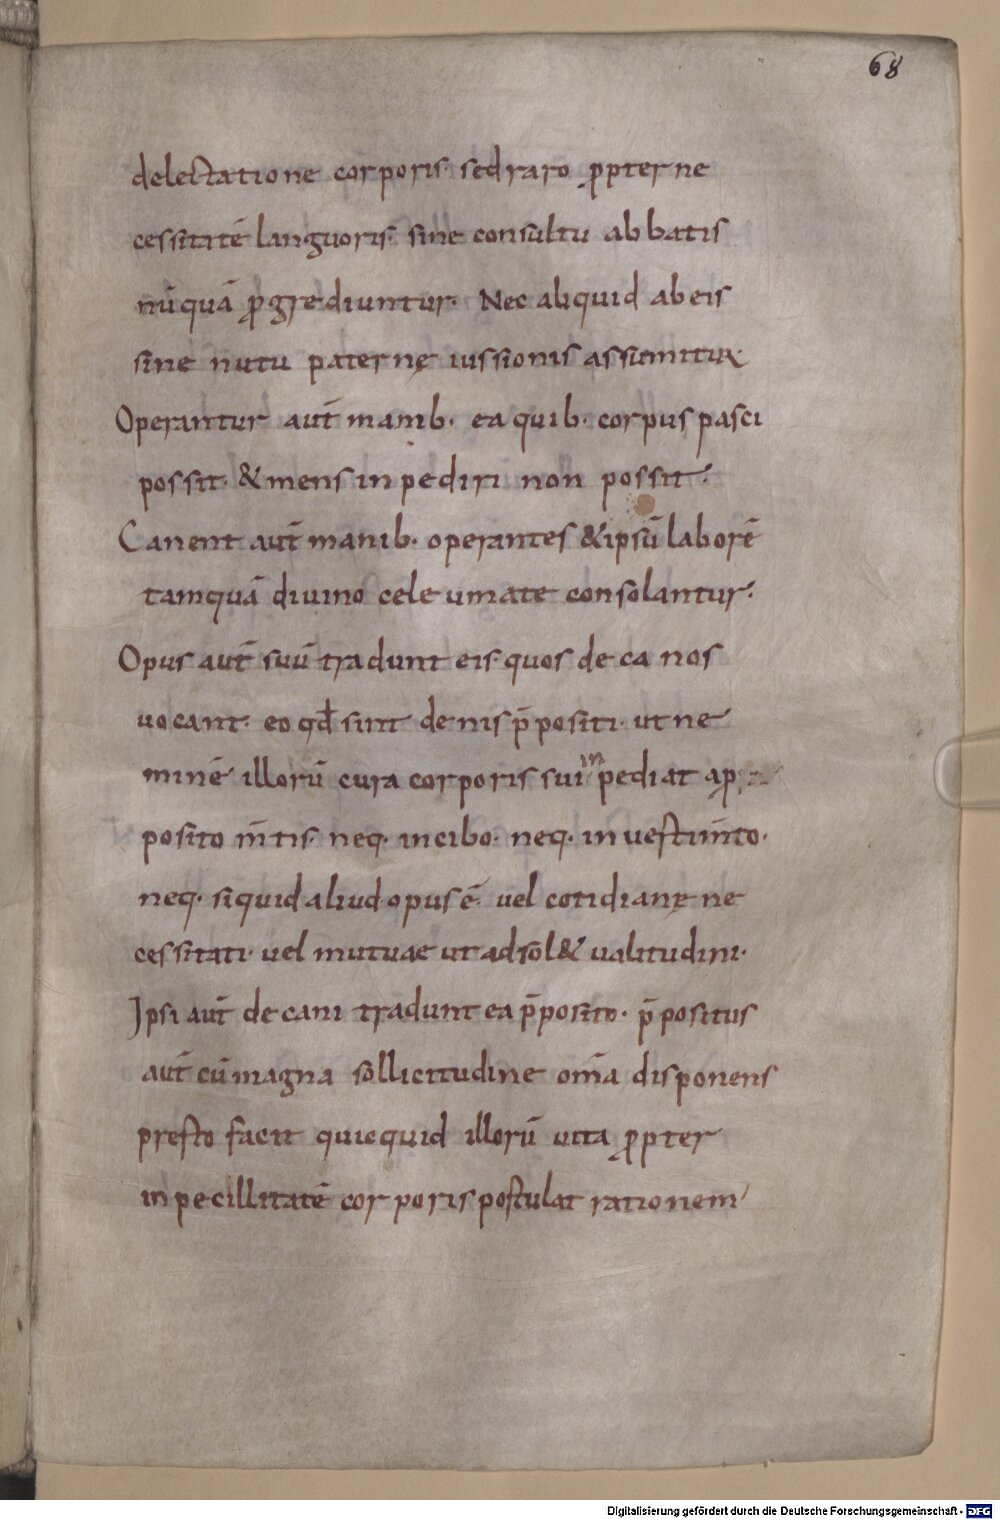 68
delectatione corporis· sed raro ꝓpter ne
cessitatē languoris· sine consultu abbatis
nūquā ꝓgrediuntur· Nec aliquid ab eis
sine nutu paternę iussionis assumitur
Operantur aut̄ manib· ea quib· corpus pasci
possit· & mens inpediri non possit·
Canent aut̄ manib· operantes & ipsū laborē
tamquā diuino celeumate consolantur·
Opus aut̄ suū tradunt eis quos decanos
uocant· eo qđ sint denis p̄positi· ut ne
minē illorū cura corporis sui inpediat a
posito m̄tis· neq· in cibo· neq· in uestim̄to·
neq· siquid aliud opus ē· uel cotidianę ne
cessitati· uel mutuae ut adsol& ualitudini·
Ipsi aut̄ decani tradunt ea p̄posito· p̄positus
aut̄ cū magna sollicitudine om̄a disponens
presto facit quicquid illorū uita ꝓpter
inpecillitatē corporis postulat rationem
Digitalisierung gefördert durch die Deutsche Forschungsgemeinschaft - DFG